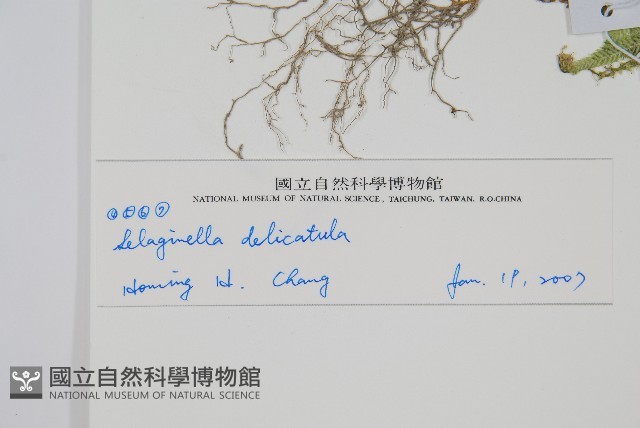 國立自然科學博物館
NATIONAL MUSEUM OF NATURAL SCIENCE, TAICHUNG, TAIWAN, R.O.CHINA
Selaginella delicatula
Homing H. Chang Jan. 19, 2007
國立自然科學博物館
NATIONAL MUSEUM OF NATURAL SCIENCE